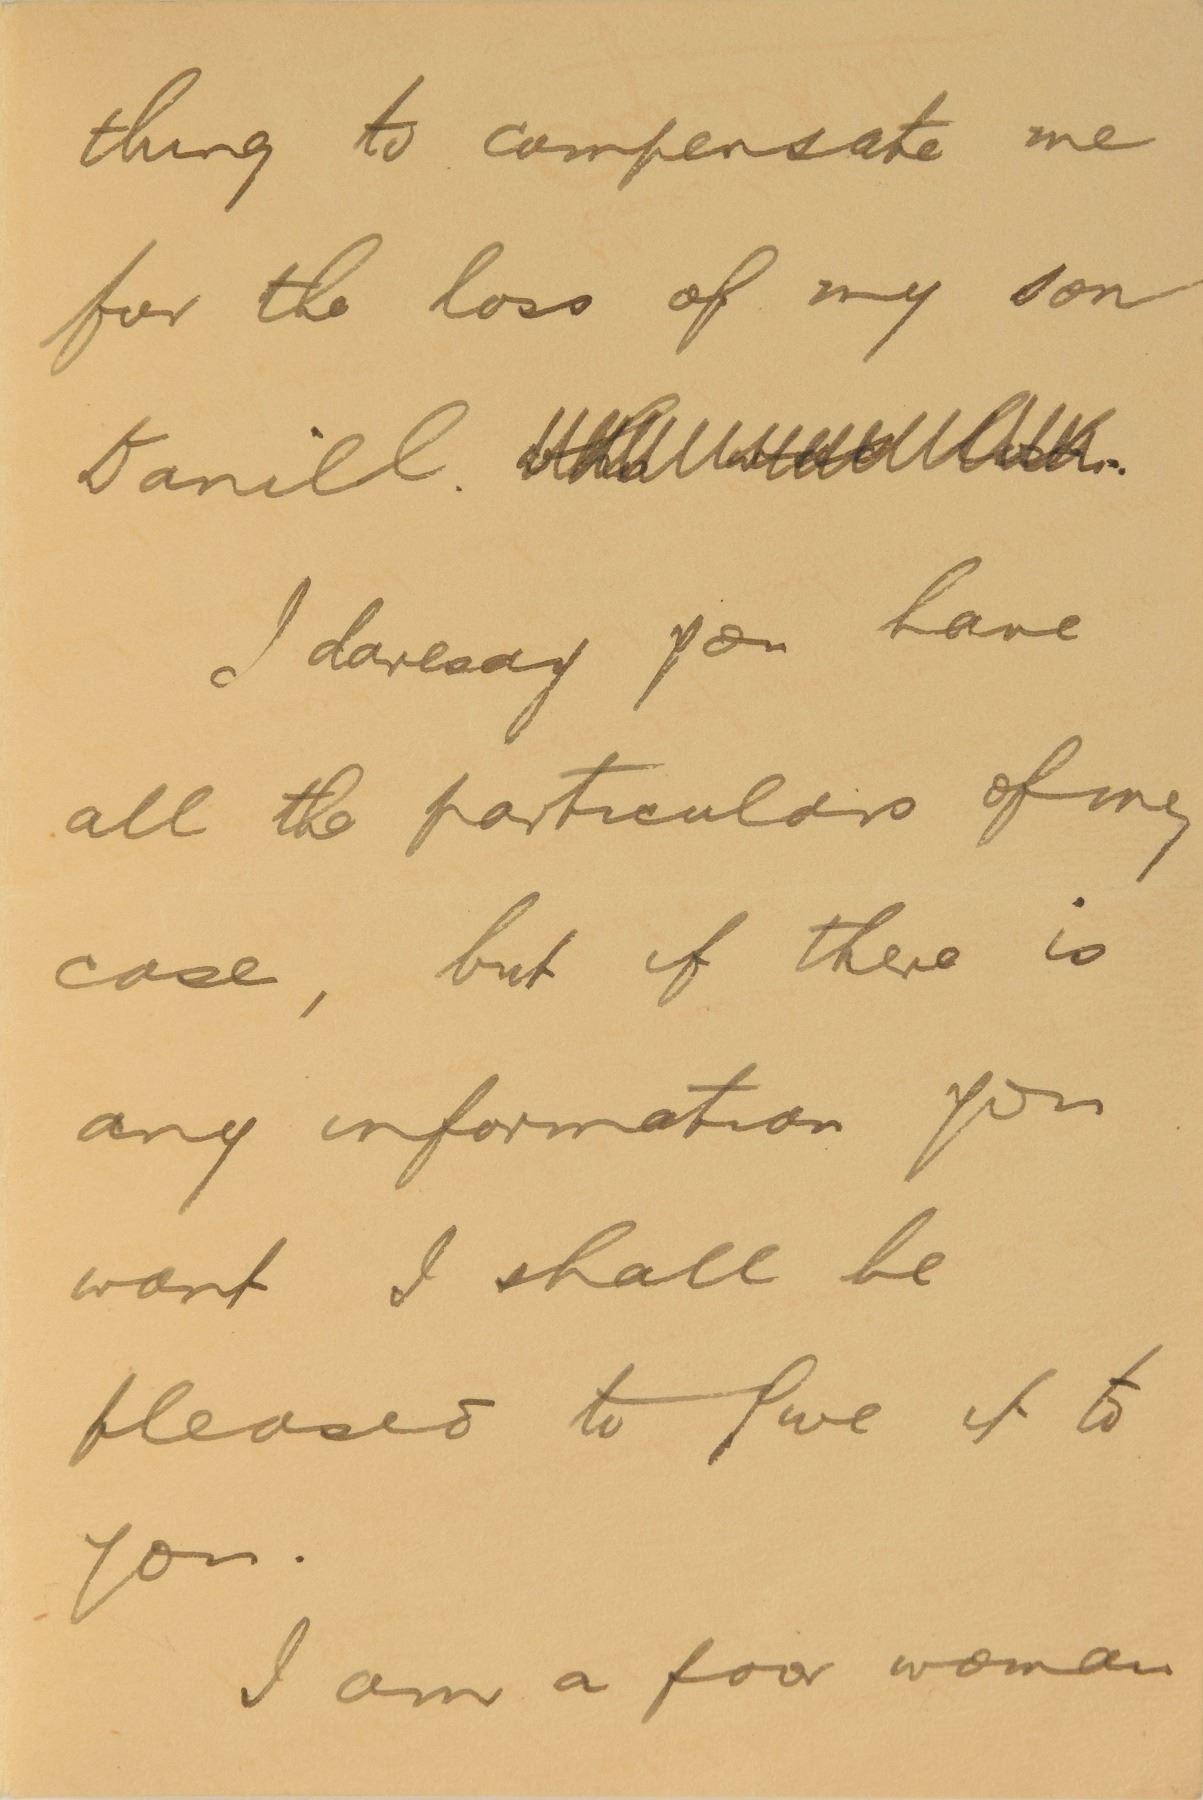 thing to compensate me
for the loss of my son
Daniel.
I daresay you have
all the particulars of my
case, but if there is
any information you
want I shall be
pleased to give it to
you.
I am a poor woman